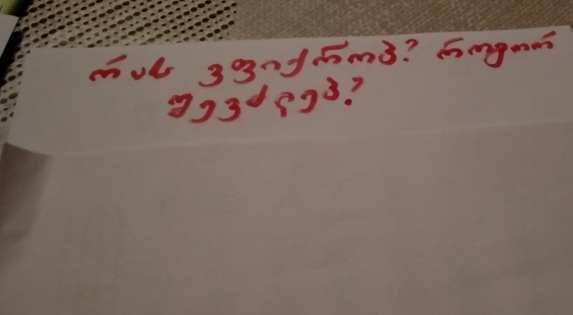 რას ვფიქრობ? როგორ
შევძლებ?